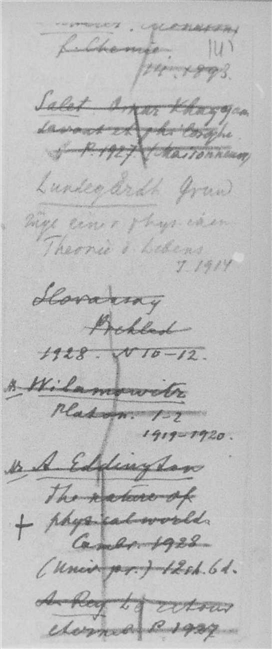 f. Chemie
1893.
Salet Omar Khayyam
savant et philosophe
P. 1927 (Maisonneuve)
Lundegårdh Grund
züge einer chem
Theorie d. Lebens
J. 1914
Slovansky
Prehled
1928. N 10-12.
Wilamowitz
Platon. 1-2
1919-1920.
A. Eddington
The nature of
+ physical world.
Cambr. 1928
(Univ. pr.) 12sh. 6d.
A. Rey Le retour
eternel P. 1927